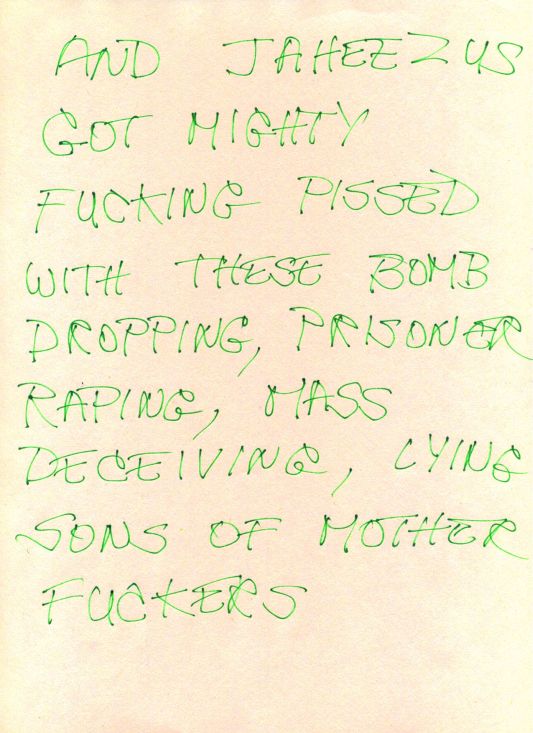 AND JAHEEZUS
GOT MIGHTY
FUCKING PISSED
WITH THESE BOMB
DROPPING, PRISONER
RAPING, MASS
DECEIVING, LYING
SONS OF MOTHER
FUCKERS